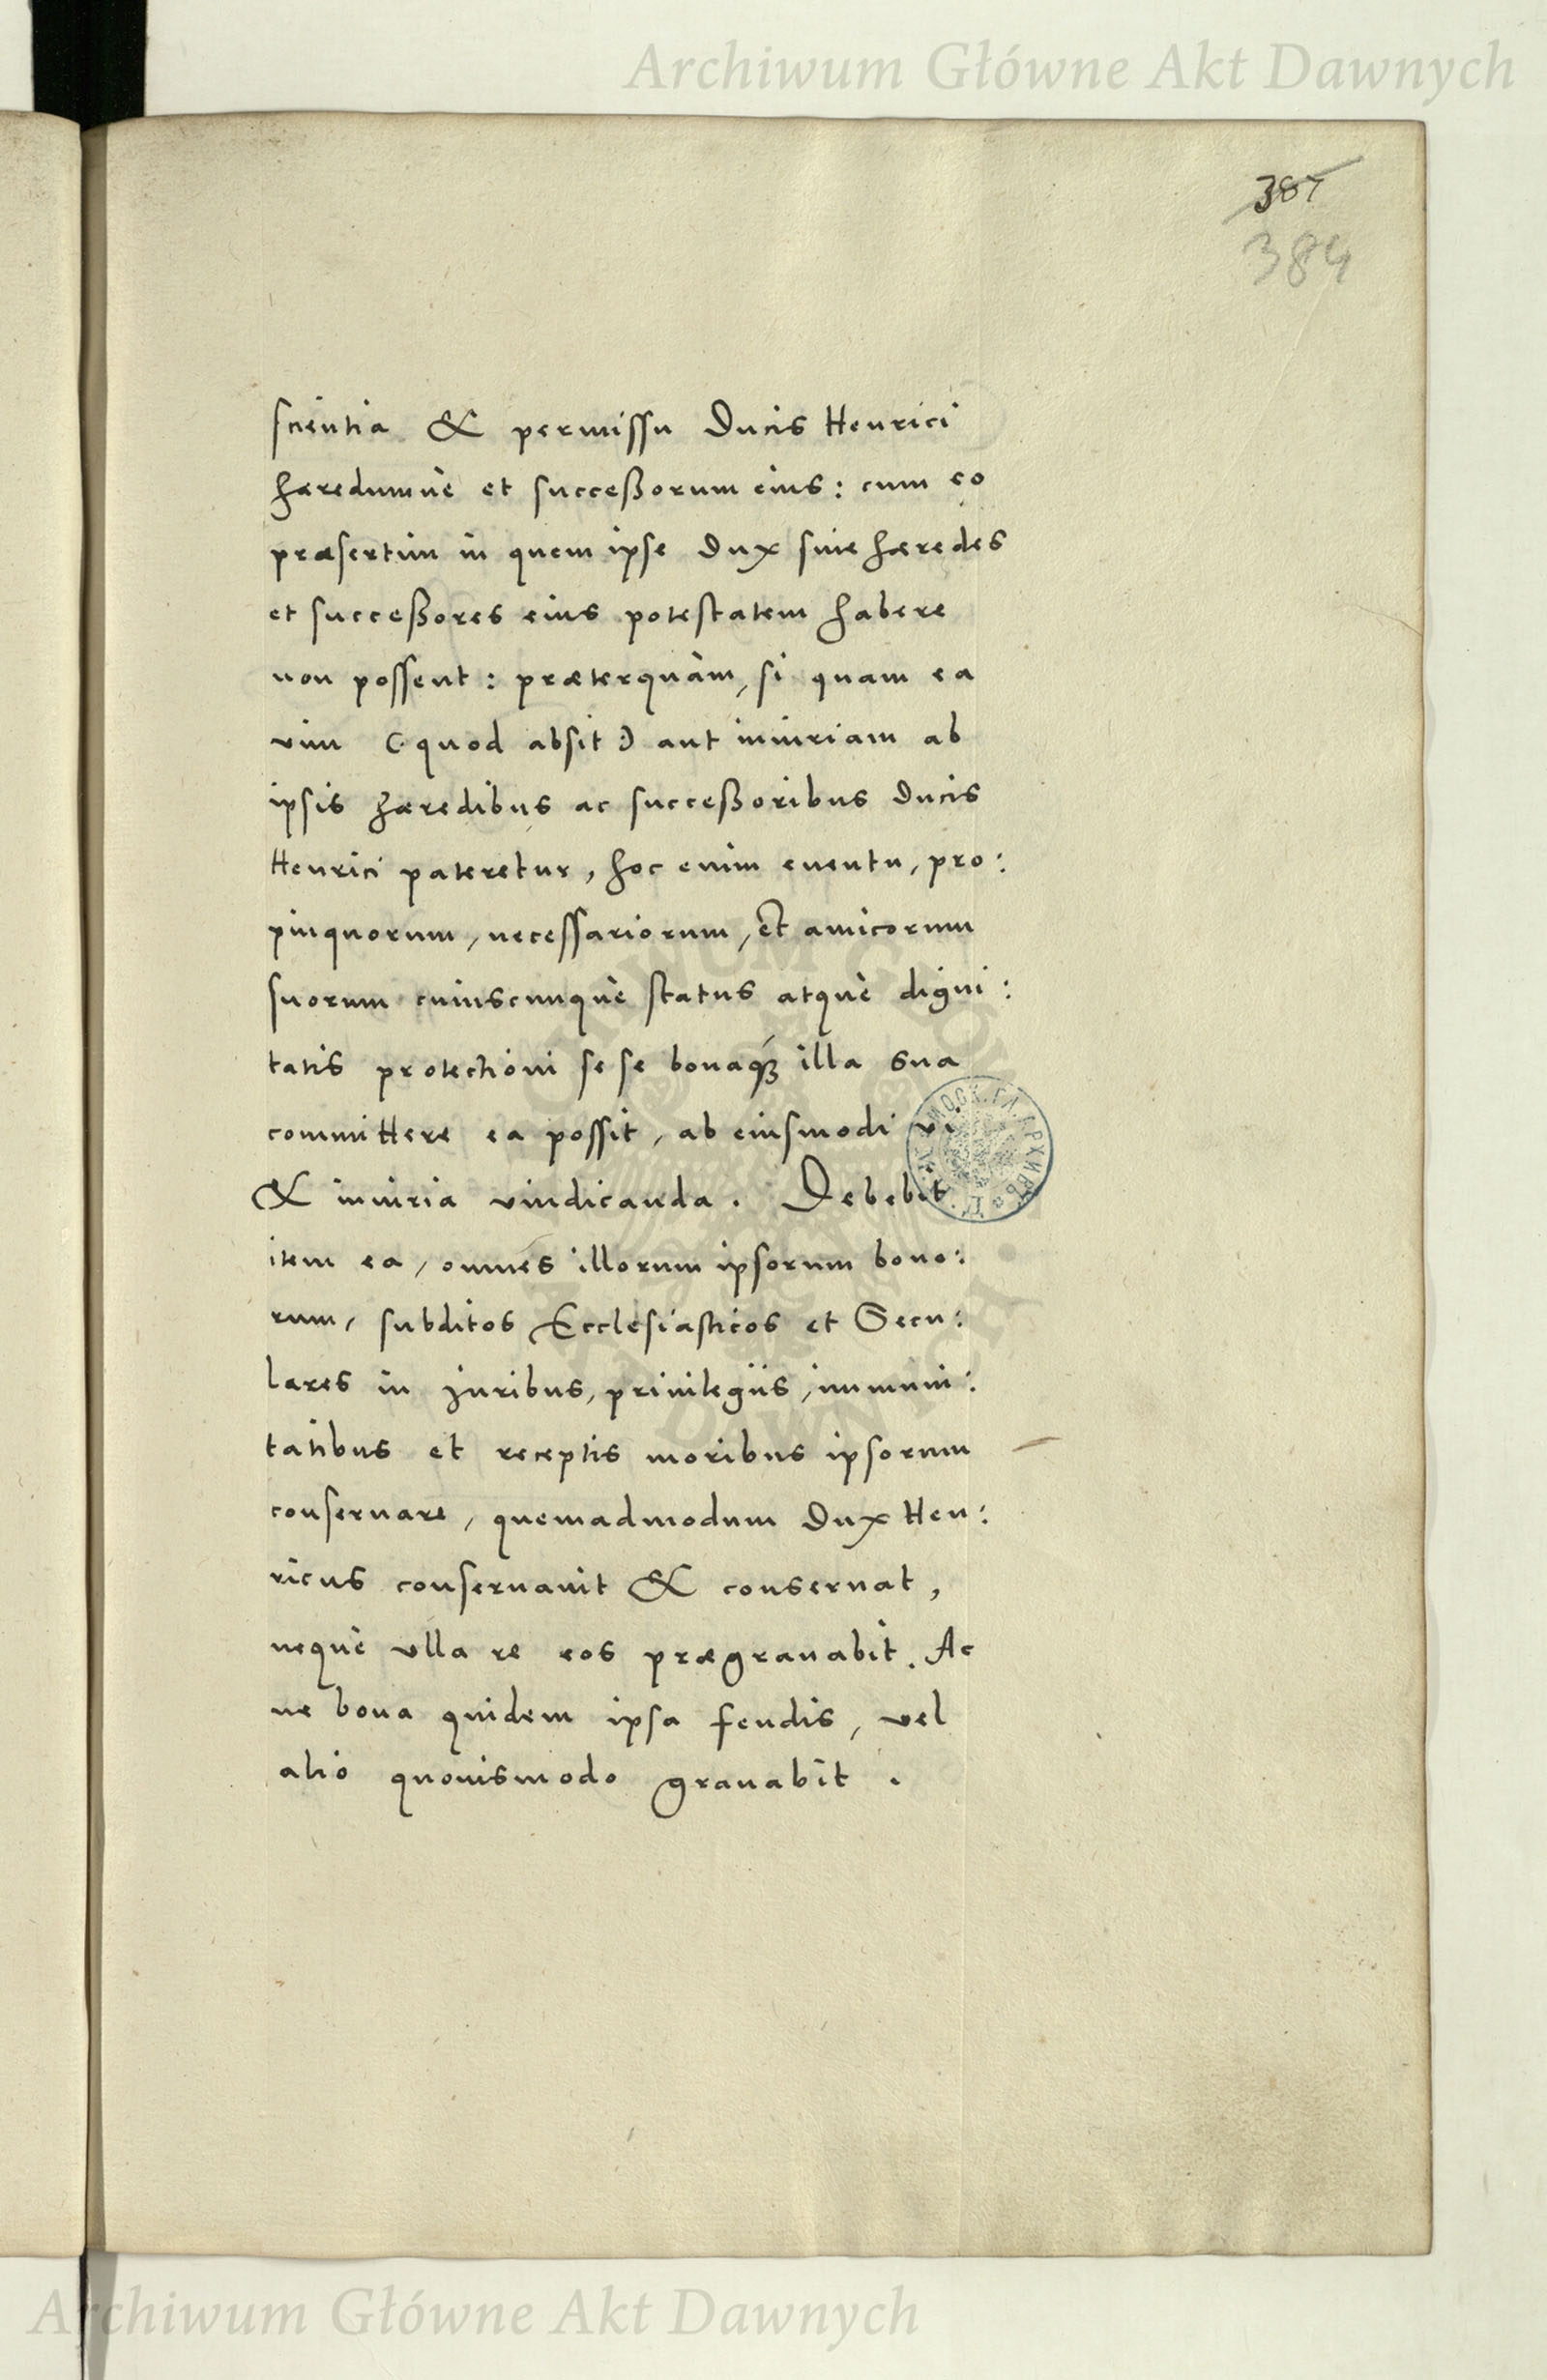 Archiwum Główne Akt Dawnych
387
384
scientia & permissu Ducis Henrici
hæredumuè et successorum eius: cum eo
præsertim in quem ipse Dux siue hæredes
et successores eius potestatem habere
non possent: præterquàm, si quam ea
vim (quod absit) aut iniuriam ab
ipsis hæredibus ac successoribus Ducis
Henrici pateretur, hoc enim euentu, pro:
pinquorum, necessariorum, et amicorum
suorum cuiuscunquè status atquè digni:
tatis protectioni se se bonaq3 illa sua
committere ea possit, ab eiusmodi vi
& iniuria vindicanda. Debebit
item ea, omnes illorum ipsorum bono:
rum, subditos Ecclesiasticos et Secu:
lares in Juribus, priuilegiis, immuni:
tatibus et receptis moribus ipsorum
conseruare, quemadmodum Dux Hen:
ricus conseruauit & conseruat,
nequè vlla re eos prægrauabit. Ac
ne bona quidem ipsa feudis, vel
alio quouismodo grauabit.
Archiwum Główne Akt Dawnych